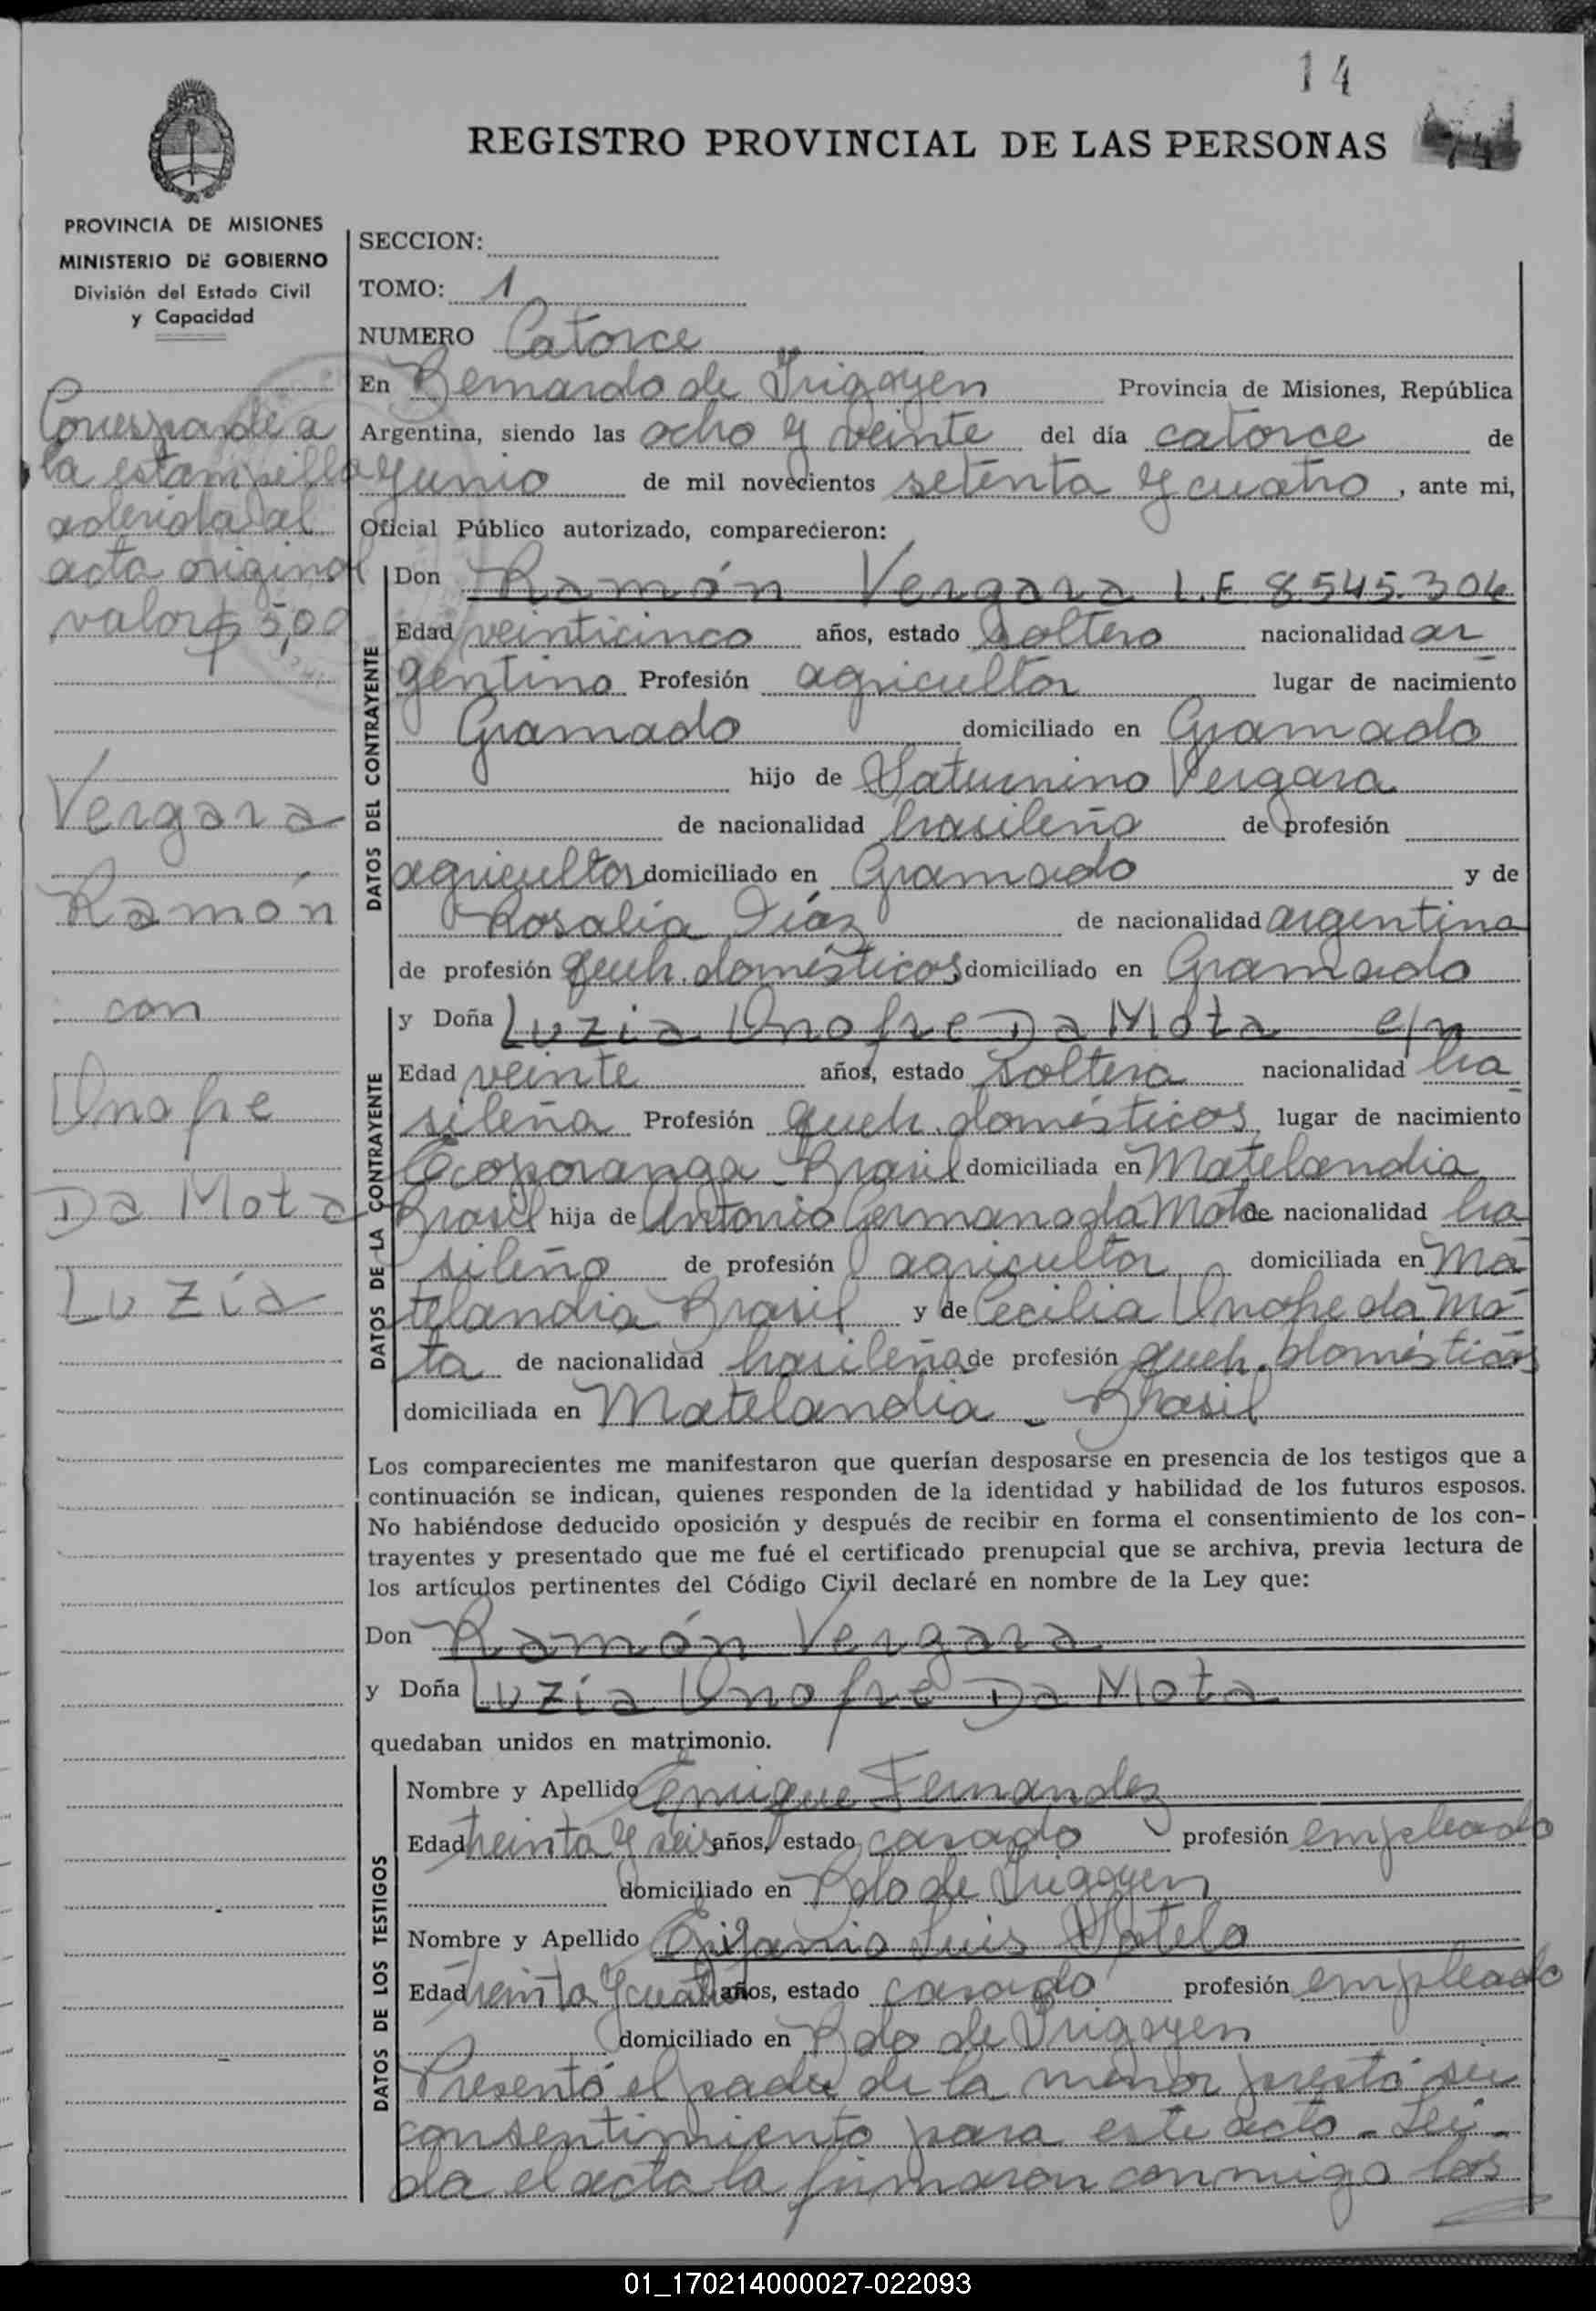 14
REGISTRO PROVINCIAL DE LAS PERSONAS
PROVINCIA DE MISIONES
MINISTERIO DE GOBIERNO
División del Estado Civil
y Capacidad
Corresponde a
la estampilla
adherida al
acta original
valor $ 5,00
Vergara
Ramón
con
Onofre
Da Mota
Luzía
SECCION:
TOMO: 1
NUMERO Catorce
En Bernardo de Irigoyen Provincia de Misiones, República
Argentina, siendo las ocho y veinte del día catorce de
Junio de mil novecientos setenta y cuatro, ante mi,
Oficial Público autorizado, comparecieron:
DATOS DEL CONTRAYENTE
Don Ramón Vergara L.E 8545.304
Edad veinticinco años, estado soltero nacionalidad ar
gentino Profesión agricultor lugar de nacimiento
Gramado domiciliado en Gramado
hijo de Saturnino Vergara
de nacionalidad brasileño de profesión
agricultor domiciliado en Gramado y de
Rosalia Díaz de nacionalidad argentina
de profesión queh. domésticos domiciliado en Gramado
DATOS DE LA CONTRAYENTE
y Doña Luzia Onofre Da Mota
Edad veinte años, estado soltera nacionalidad bra
sileña Profesión queh. domésticos lugar de nacimiento
Ecoporanga - Brasil domiciliada en Matelandia
Brasil hija de Antonio Germano da Mota de nacionalidad bra
sileño de profesión agricultor domiciliada en Ma
telandia Brasil y de Cecilia Onofre da Mo
ta de nacionalidad brasileña de profesión queh. domésticos
domiciliada en Matelandia - Brasil
Los comparecientes me manifestaron que querían desposarse en presencia de los testigos que a
continuación se indican, quienes responden de la identidad y habilidad de los futuros esposos.
No habiéndose deducido oposición y después de recibir en forma el consentimiento de los con-
trayentes y presentado que me fué el certificado prenupcial que se archiva, previa lectura de
los artículos pertinentes del Código Civil declaré en nombre de la Ley que:
Don Ramón Vergara
y Doña Luzía Onofre Da Mota
quedaban unidos en matrimonio.
DATOS DE LOS TESTIGOS
Nombre y Apellido Enrique Fernandez
Edad treinta y seis años, estado casado profesión empleado
domiciliado en Bdo de Irigoyen
Nombre y Apellido Epifanio Luis Sotelo
Edad treinta y cuatro años, estado casado profesión empleado
domiciliado en Bdo de Irigoyen
Presentó el padre de la menor prestó su
consentimiento para este acto - Leí
da el acta la firmaron conmigo los
01_170214000027-022093